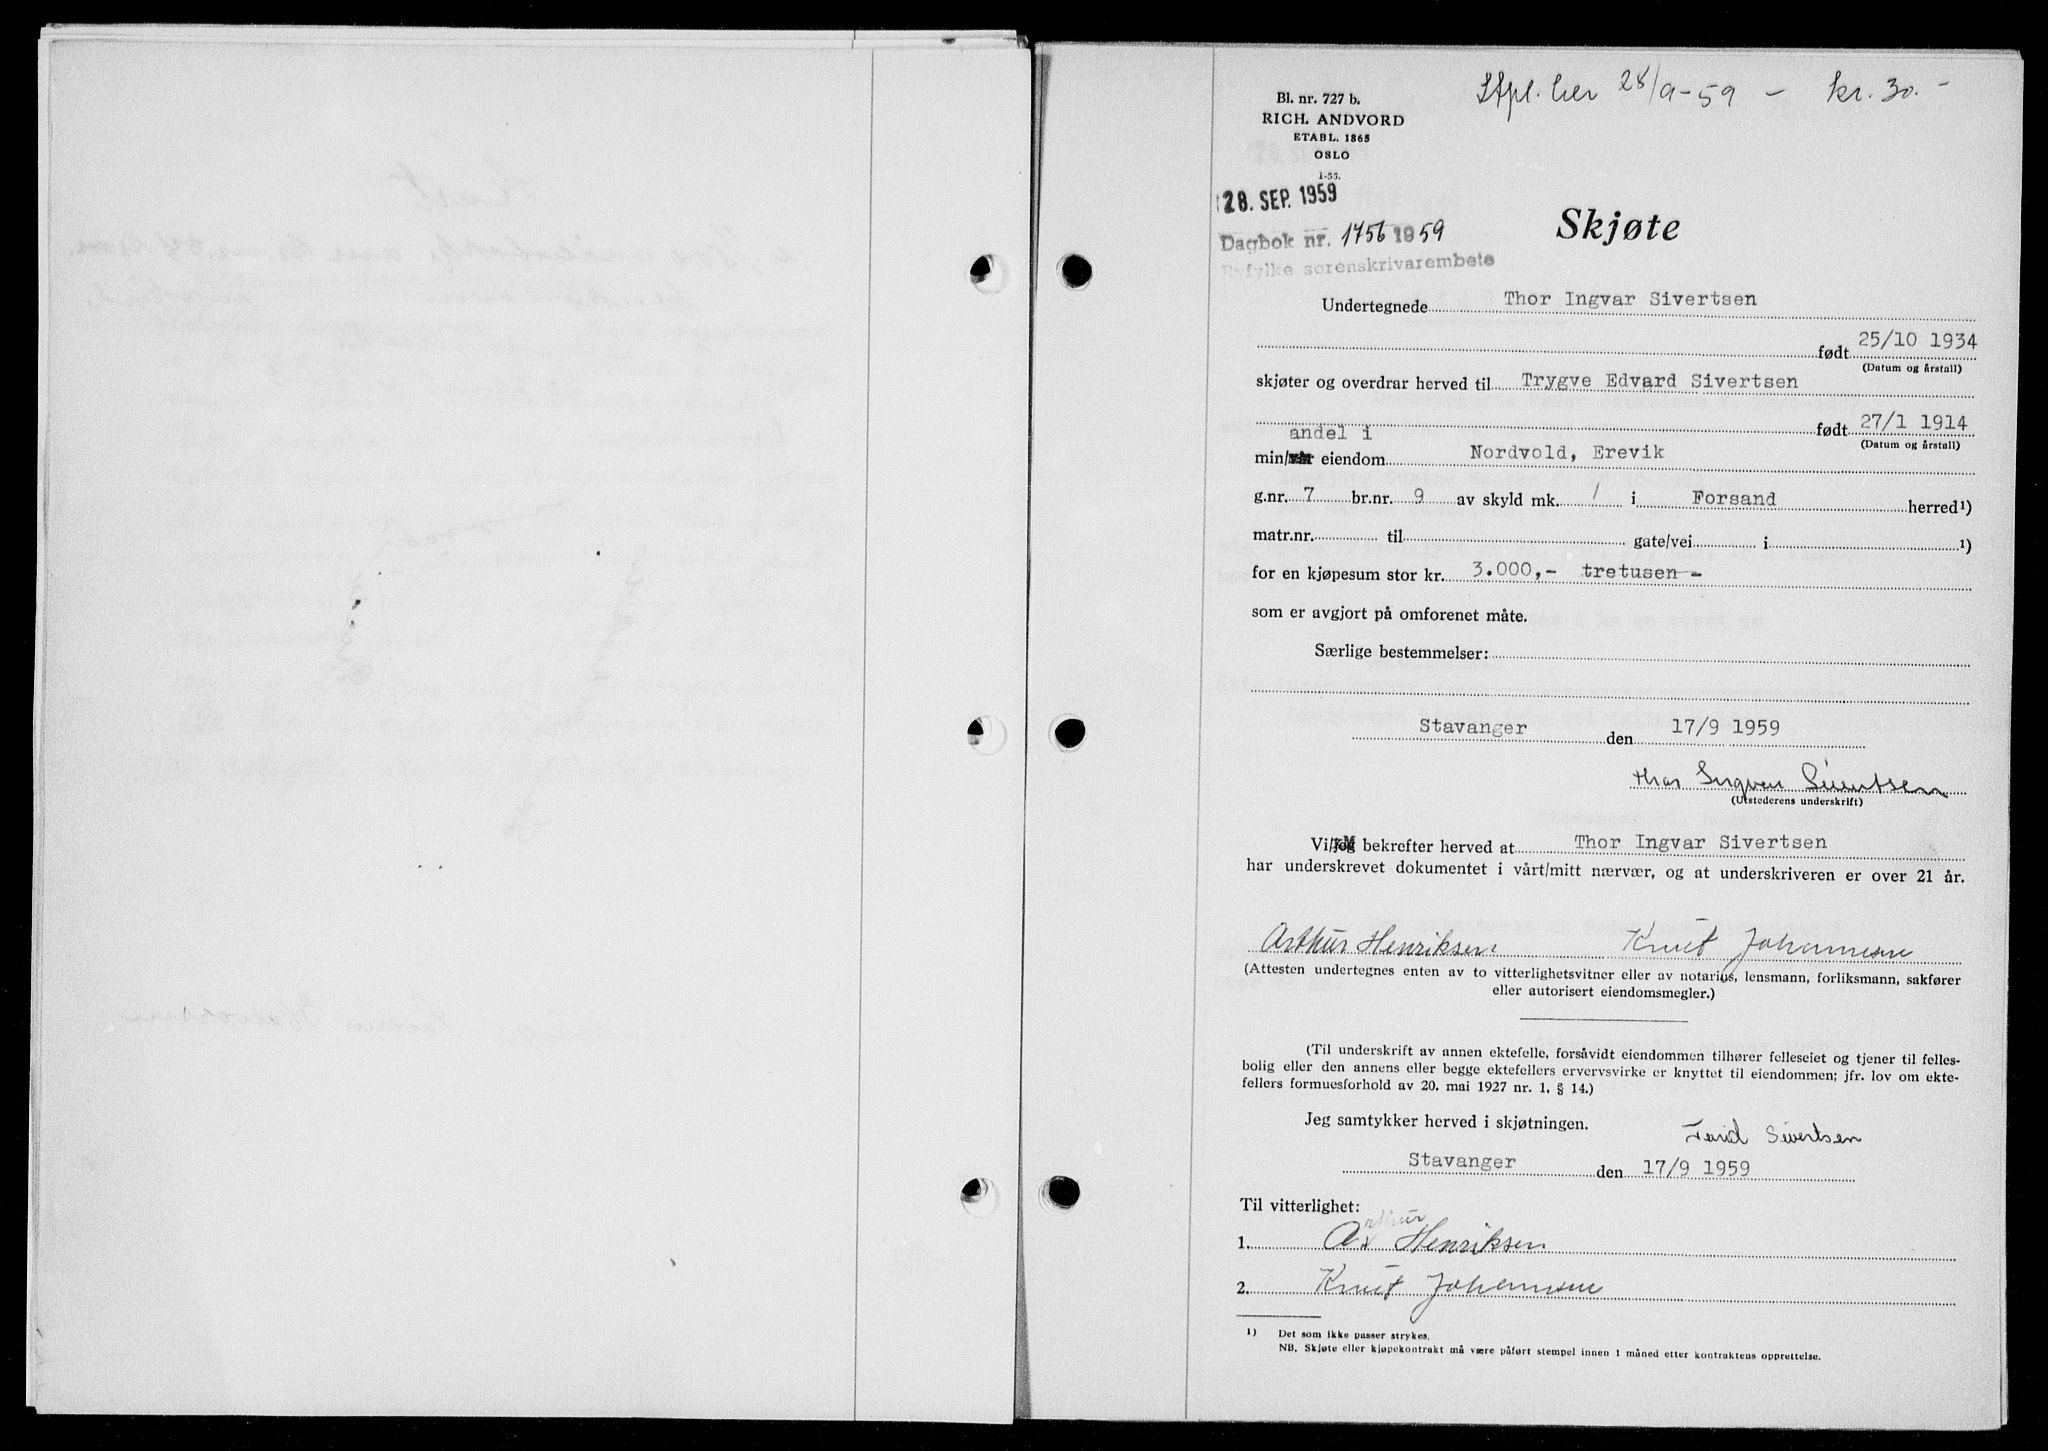 Stpl. her 28/9-59 - kr. 30.-
Bl. nr. 727 b.
RICH. ANDVORD
ETABL. 1865
OSLO
1-53.
28. SEP. 1959
Dagbok nr. 1756 1959
Ryfylke sorenskrivarembete
Skjøte
Undertegnede Thor Ingvar Sivertsen
født 25/10 1934
(Datum og årstall)
skjøter og overdrar herved til Trygve Edvard Sivertsen
født 27/1 1914
(Datum og årstall)
andel i
min/vår eiendom Nordvold, Erevik
g.nr. 7 br.nr. 9 av skyld mk. 1 i Forsand herred¹)
matr.nr. til gate/vei i ¹)
for en kjøpesum stor kr. 3.000,- tretusen-
som er avgjort på omforenet måte.
Særlige bestemmelser:
Stavanger den 17/9 1959
Thor Ingvar Sivertsen
(Utstederens underskrift)
Vi/jeg bekrefter herved at Thor Ingvar Sivertsen
har underskrevet dokumentet i vårt/mitt nærvær, og at underskriveren er over 21 år.
Arthur Henriksen Knut Johannesen
(Attesten undertegnes enten av to vitterlighetsvitner eller av notarius, lensmann, forliksmann, sakfører
eller autorisert eiendomsmegler.)
(Til underskrift av annen ektefelle, forsåvidt eiendommen tilhører felleseiet og tjener til felles-
bolig eller den annens eller begge ektefellers ervervsvirke er knyttet til eiendommen; jfr. lov om ekte-
fellers formuesforhold av 20. mai 1927 nr. 1, § 14.)
Jeg samtykker herved i skjøtningen.
Sivertsen
Stavanger den 17/9 1959
Til vitterlighet:
1. Arthur Henriksen
2. Knut Johannesen
¹) Det som ikke passer strykes.
NB. Skjøte eller kjøpekontrakt må være påført stempel innen 1 måned etter kontraktens opprettelse.